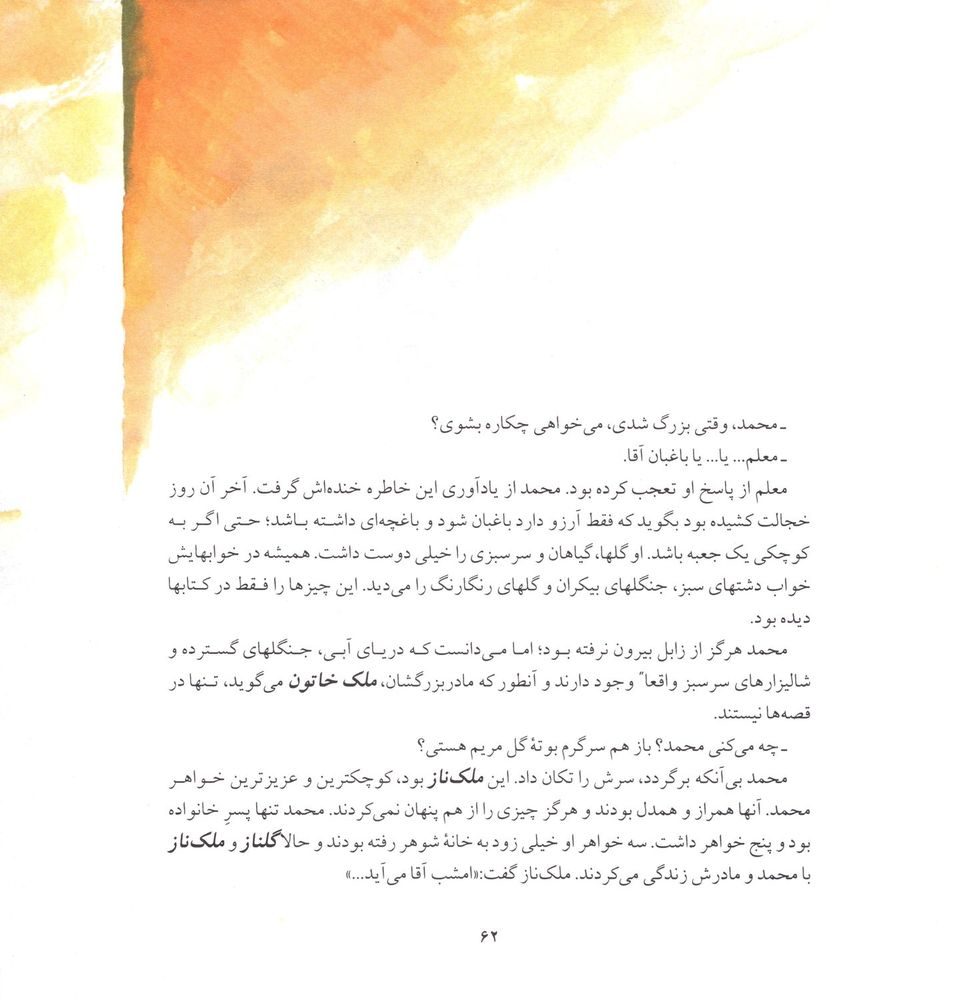 ـ محمد، وقتی بزرگ شدی، می‌خواهی چکاره بشوی؟
ـ معلم... یا... یا باغبان آقا.
معلم از پاسخ او تعجب کرده بود. محمد از یادآوری این خاطره خنده‌اش گرفت. آخر آن روز
خجالت کشیده بود بگوید که فقط آرزو دارد باغبان شود و باغچه‌ای داشته باشد؛ حتی اگر به
کوچکی یک جعبه باشد. او گلها، گیاهان و سرسبزی را خیلی دوست داشت. همیشه در خوابهایش
خواب دشتهای سبز، جنگلهای بیکران و گلهای رنگارنگ را می‌دید. این چیزها را فقط در کتابها
دیده بود.
محمد هرگز از زابل بیرون نرفته بود؛ اما می‌دانست که دریای آبی، جنگلهای گسترده و
شالیزارهای سرسبز واقعاً وجود دارند و آنطور که مادربزرگشان، ملک خاتون می‌گوید، تنها در
قصه‌ها نیستند.
ـ چه می‌کنی محمد؟ باز هم سرگرم بوتهٔ گل مریم هستی؟
محمد بی‌آنکه برگردد، سرش را تکان داد. این ملک‌ناز بود، کوچکترین و عزیزترین خواهر
محمد. آنها همراز و همدل بودند و هرگز چیزی را از هم پنهان نمی‌کردند. محمد تنها پسرِ خانواده
بود و پنج خواهر داشت. سه خواهر او خیلی زود به خانهٔ شوهر رفته بودند و حالا گلناز و ملک‌ناز
با محمد و مادرش زندگی می‌کردند. ملک‌ناز گفت:«امشب آقا می‌آید...»
۶۲